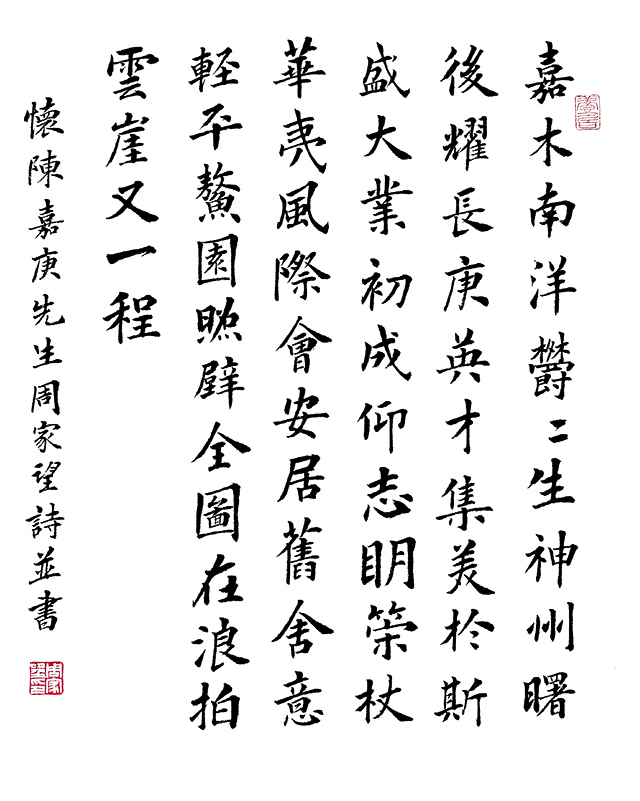 嘉木南洋鬱〻生神州曙
後耀長庚英才集美於斯
盛大業初成仰志眀策杖
華夷風際會安居舊舍意
輕平鰲園照壁全圖在浪拍
雲崖又一程
懷陳嘉庚先生周家望詩並書
周家望印